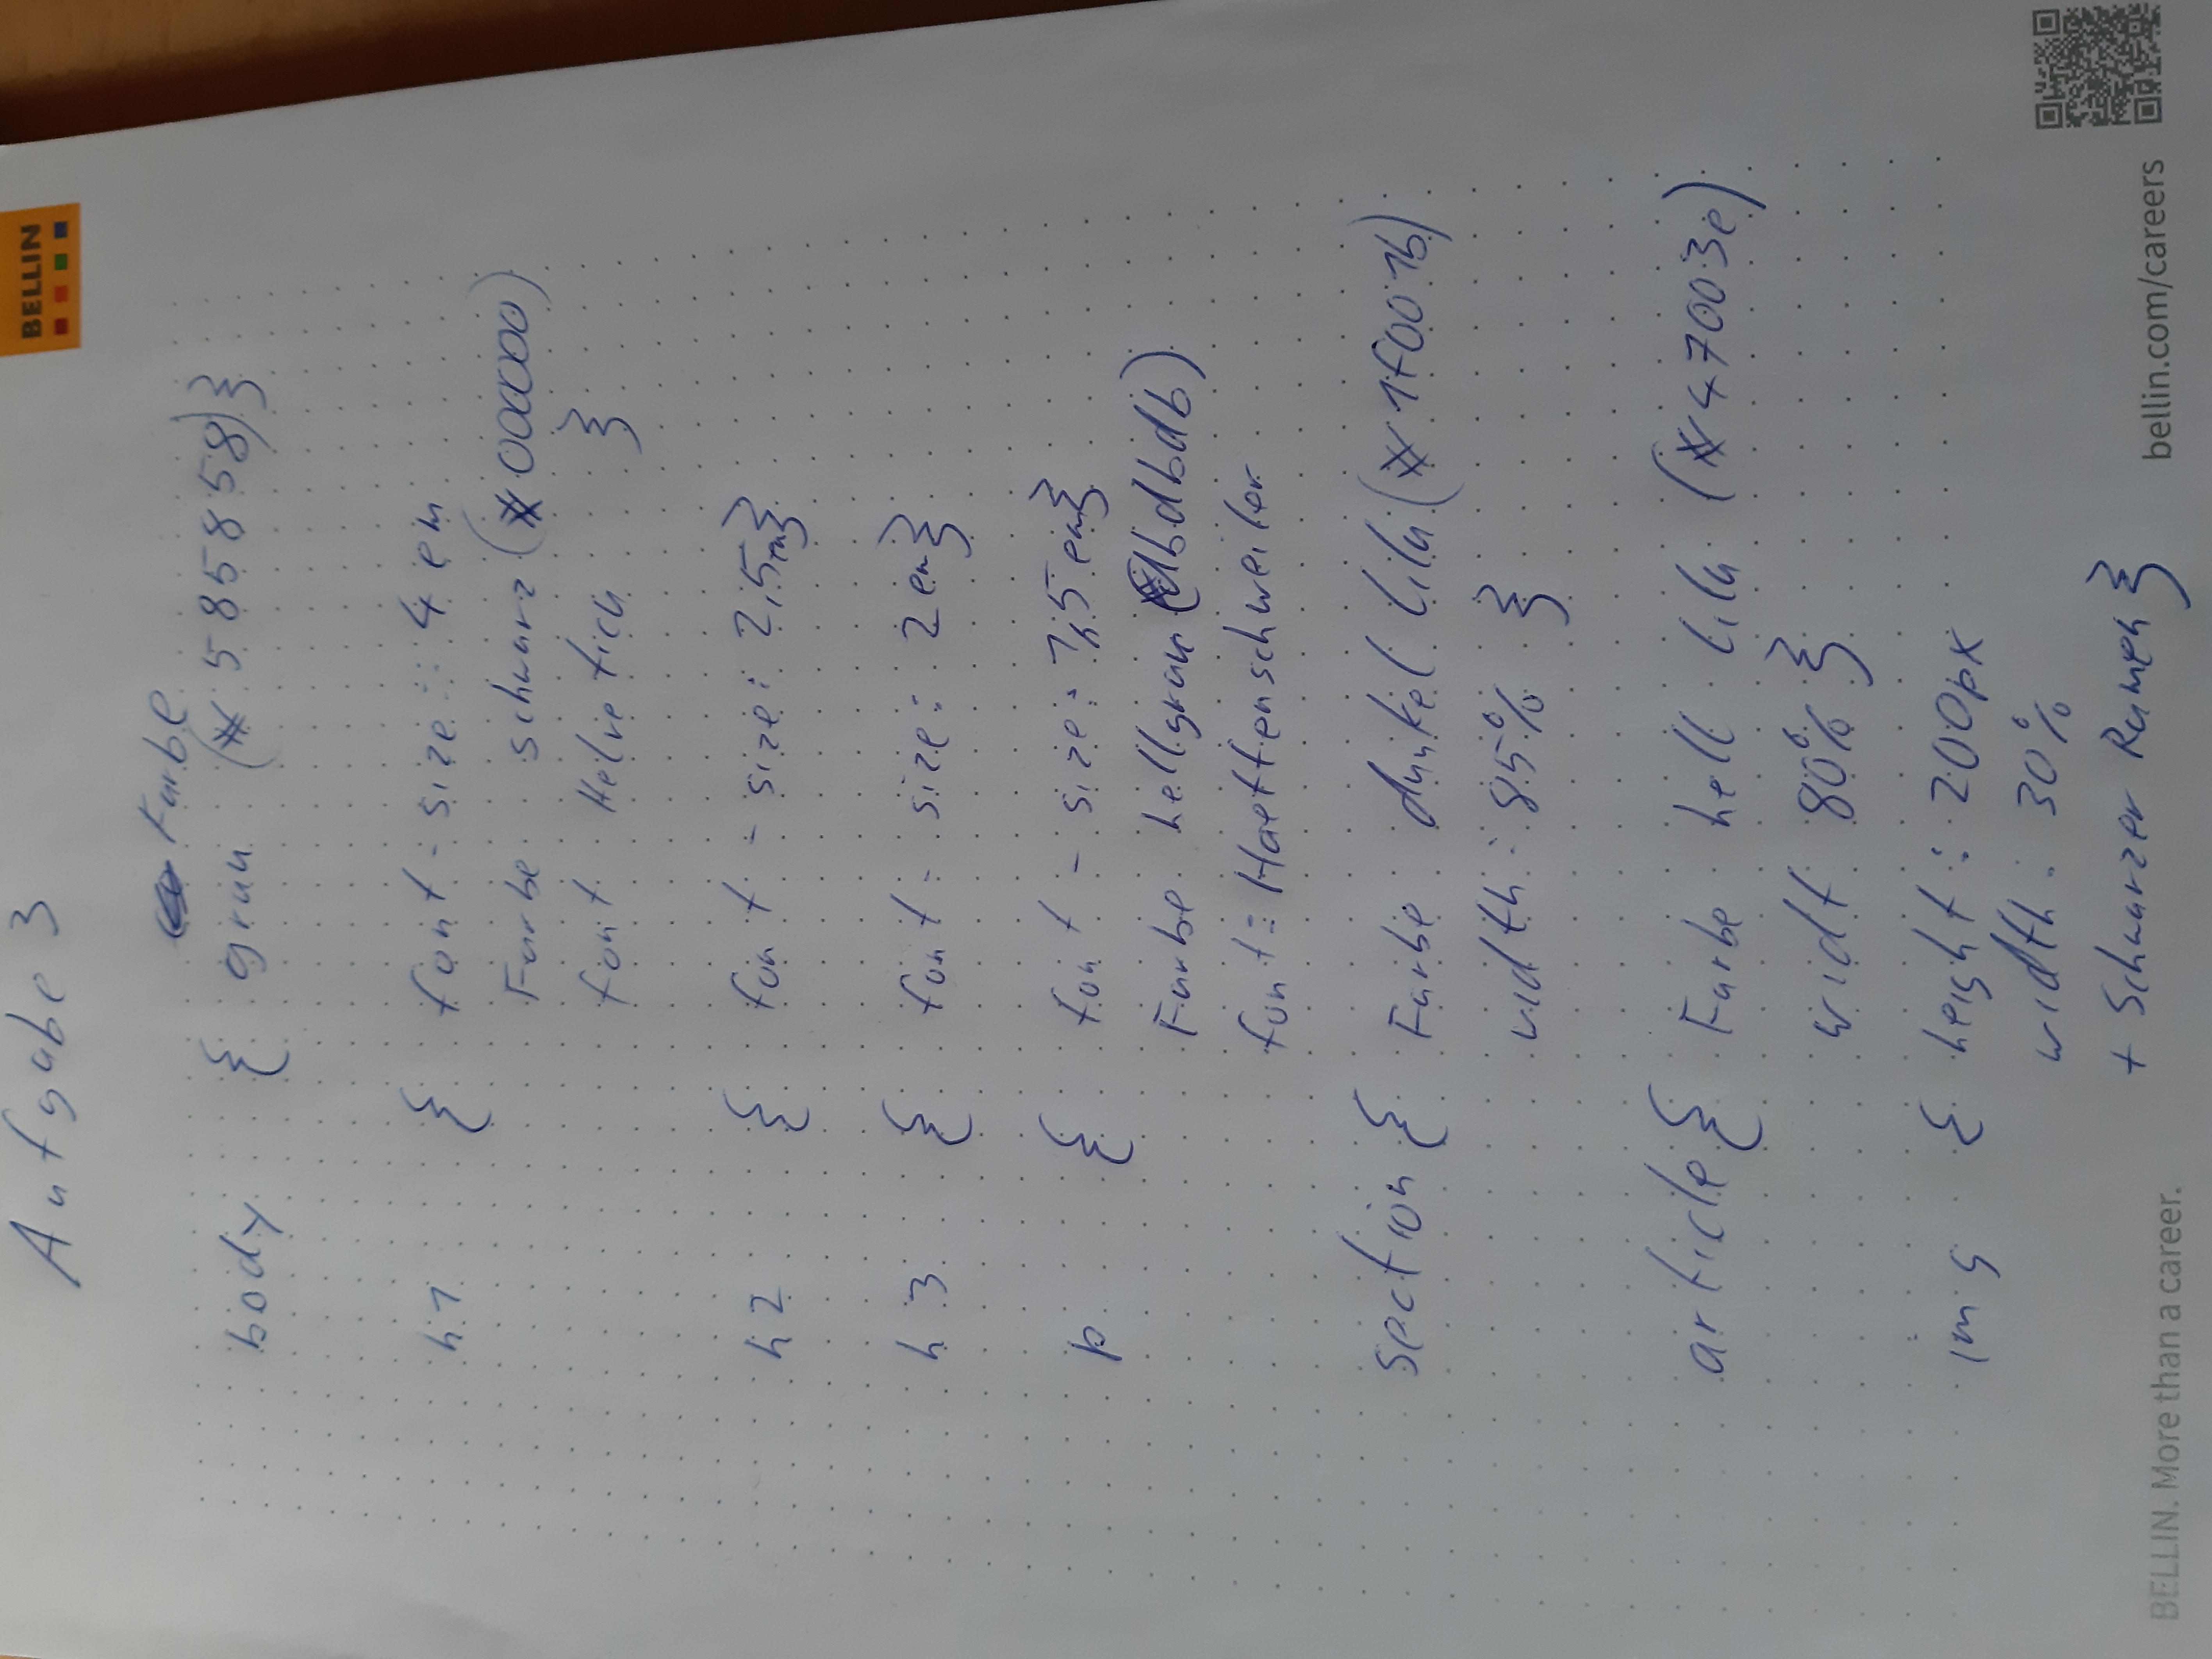 Aufgabe 3
BELLIN
Farbe
body { grau (#585858)}
h1 { font-size: 4em
Farbe schwarz (#000000)
font Helvetica }
h2 { font-size: 2,5em}
h3 { font-size: 2em}
p { font-size: 1,5em}
Farbe hellgrau (#dbdbdb)
font: Haettenschweiler
section { Farbe dunkel lila (#1f001b)
width: 85% }
article { Farbe hell lila (#47003e)
widt 80% }
img { height: 200px
width: 30%
+ Schwarzer Ramen }
BELLIN. More than a career.
bellin.com/careers